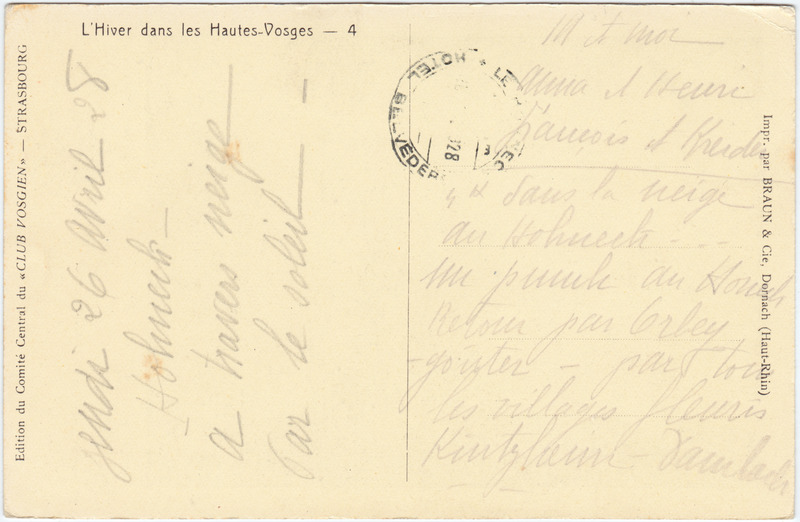 L'Hiver dans les Hautes-Vosges — 4
Edition du Comité Central du «CLUB VOSGIEN» — STRASBOURG
jeudi 26 avril 28
Hohneck —
a travers neige —
Par le soleil —
HOTEL BELVÉDÈRE
M et moi
Anna et Henri
François et
4 x dans la neige
au Hohneck - - -
un punch au
Retour par Orbey
-goûter - par tous
les villages fleuris
Kintzheim - Dambach
Impr. par BRAUN & Cie, Dornach (Haut-Rhin)